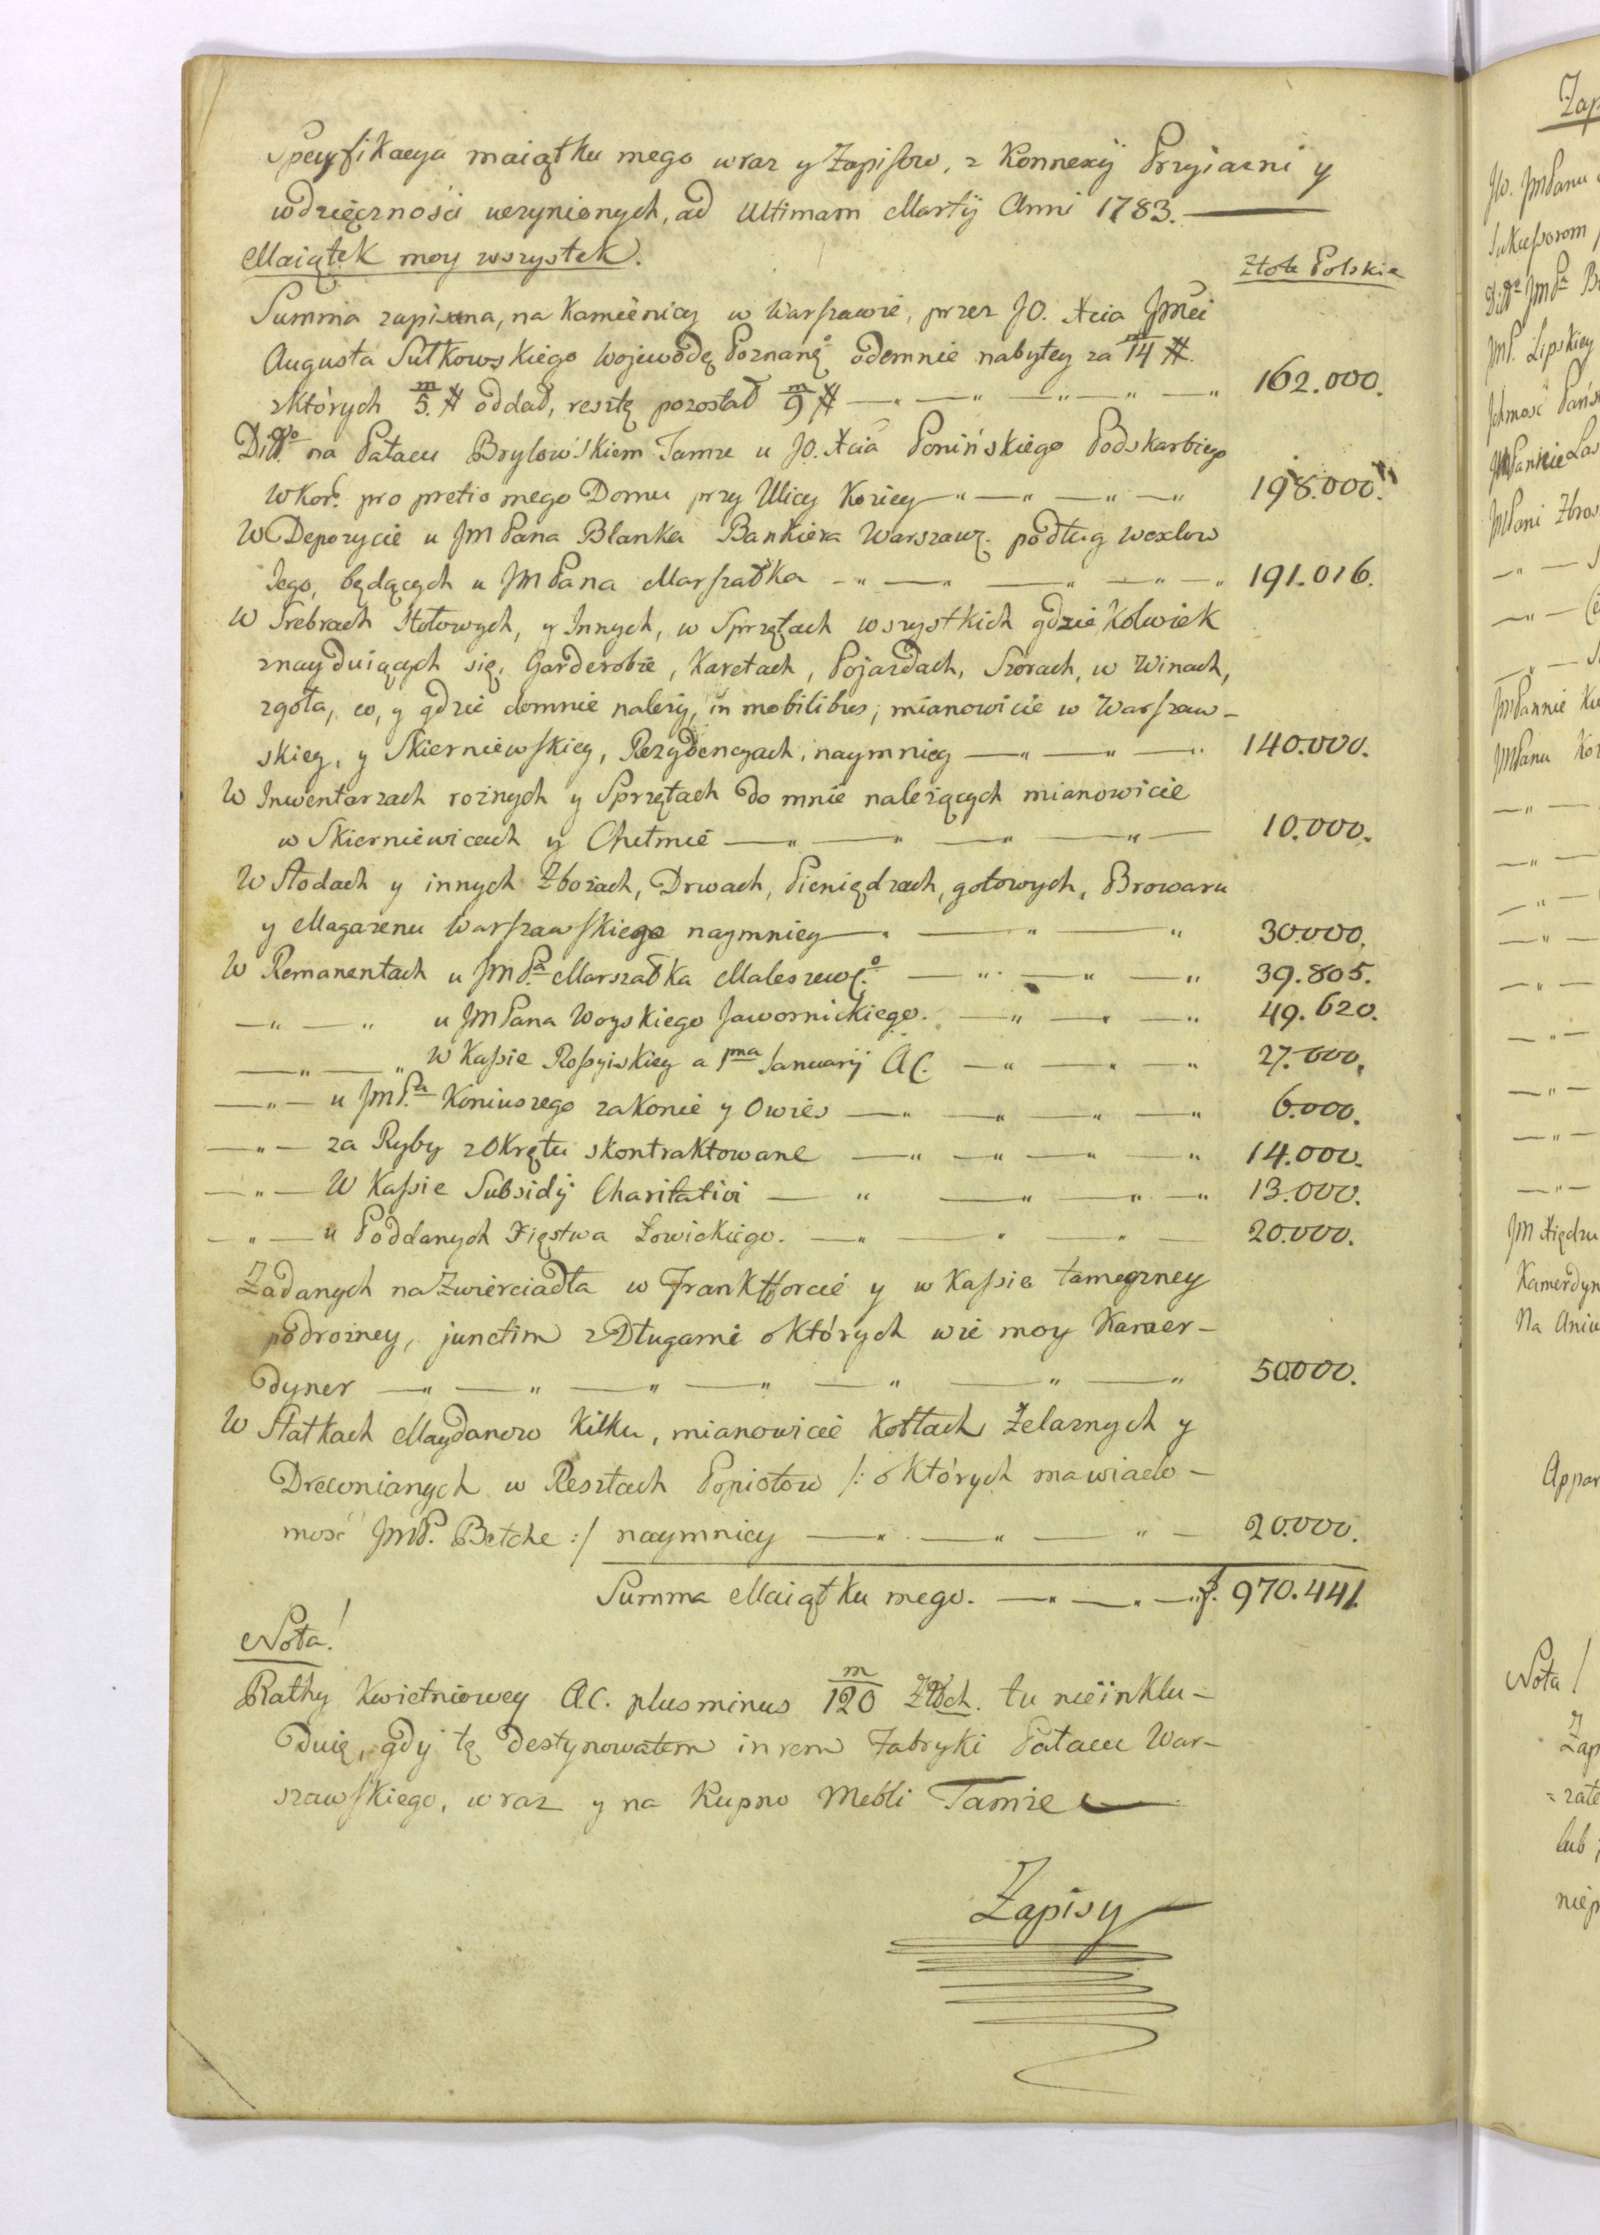 Specyfikacya maiątku mego wraz y Zapisow, z Konnexÿ Przyiazni y
wdzięcznośći uczynionych, ad Ultimam Martÿ Anni 1783.
Maiątek moy wszystek.
Złote Polskie
Summa zapisana, na Kamienicy w Warszawie, przez JO. Xcia Jmći
Augusta Sułkowskiego Wojewodę Poznanṣ° odemnie nabytey za m/14 #.
zktórych m/5. # oddał, resztę pozostał m/9 # — „ — „ — „ — „ — „ 162.000.
Ditto na Pałacu Brylowskiem Tamze u JO. Xcia Ponińskiego Podskarbiego
WKor. pro pretio mego Domu przy Ulicy Koziey — „ — „ — „ — „ 198.000.
W Depozycie u JMPana Blanka Bankiera Warszawṣ. podług wexlow
Jego, będących u JMPana Marszałka — „ — „ — „ — „ — „ 191.016.
W Srebrach Stołowych, y Innych, w Sprzętach wszystkich gdzie kolwiek
znayduiących się, Garderobie, Karetach, Pojazdach, Szorach, w Winach,
zgoła, co, y gdzie domnie należy, in mobilibus; mianowicie w Warszaw-
skiey, y Skierniewskiey, Rezydencyach, naymniey — „ — „ — „ 140.000.
W Inwentarzach rożnych y Sprzętach do mnie należących mianowicie
w Skierniewicach y Chełmie — „ — „ — „ — „ — 10.000.
W Słodach y innych Zbożach, Drwach, Pieniędzach, gotowych, Browaru
y Magazenu Warszawskiego naymniey — „ — „ — „ 30.000.
W Remanentach u JMPa Marszałka Maleszewṣ° — „ — „ — „ 39.805.
— „ — „ u JMPana Woyskiego Jawornickiego. — „ — „ — „ 49.620.
— „ — „ W Kassie Rossyiskiey a 1ma Januarÿ A.C. — „ — „ — „ 27.000.
— „ — u JMPa Koniuszego zaKonie y Owies — „ — „ — „ — „ 6.000.
— „ — za Ryby zOkrętu skontraktowane — „ — „ — „ — „ 14.000.
— „ — W Kassie Subsidÿ Charitativi — „ — „ — „ — „ 13.000.
— „ — u Poddanych Xięstwa Łowickiego. — „ — „ — „ — 20.000.
Zadanych na Zwierciadła w Frankfforcie y w Kassie tameczney
podrożney, junctim zDługami októrych wie moy Kamer-
dyner — „ — „ — „ — „ — „ — „ — „ 50.000.
W Statkach Maydanow kilku, mianowicie kotłach Żelaznych y
Drewnianych w Resztach Popiołow /: októrych ma wiado-
mość JMP. Betche :/ naymniey — „ — „ — „ — 20.000.
Summa Maiątku mego. — „ — „ — „ f. 970.441.
Nota!
Rathy Kwietniowey A.C. plus minus m/120 Złłch. tu nieinklu-
duię, gdy tę destynowałem in rem Fabryki Pałacu War-
szawskiego, wraz y na Kupno Mebli Tamże
Zapisy